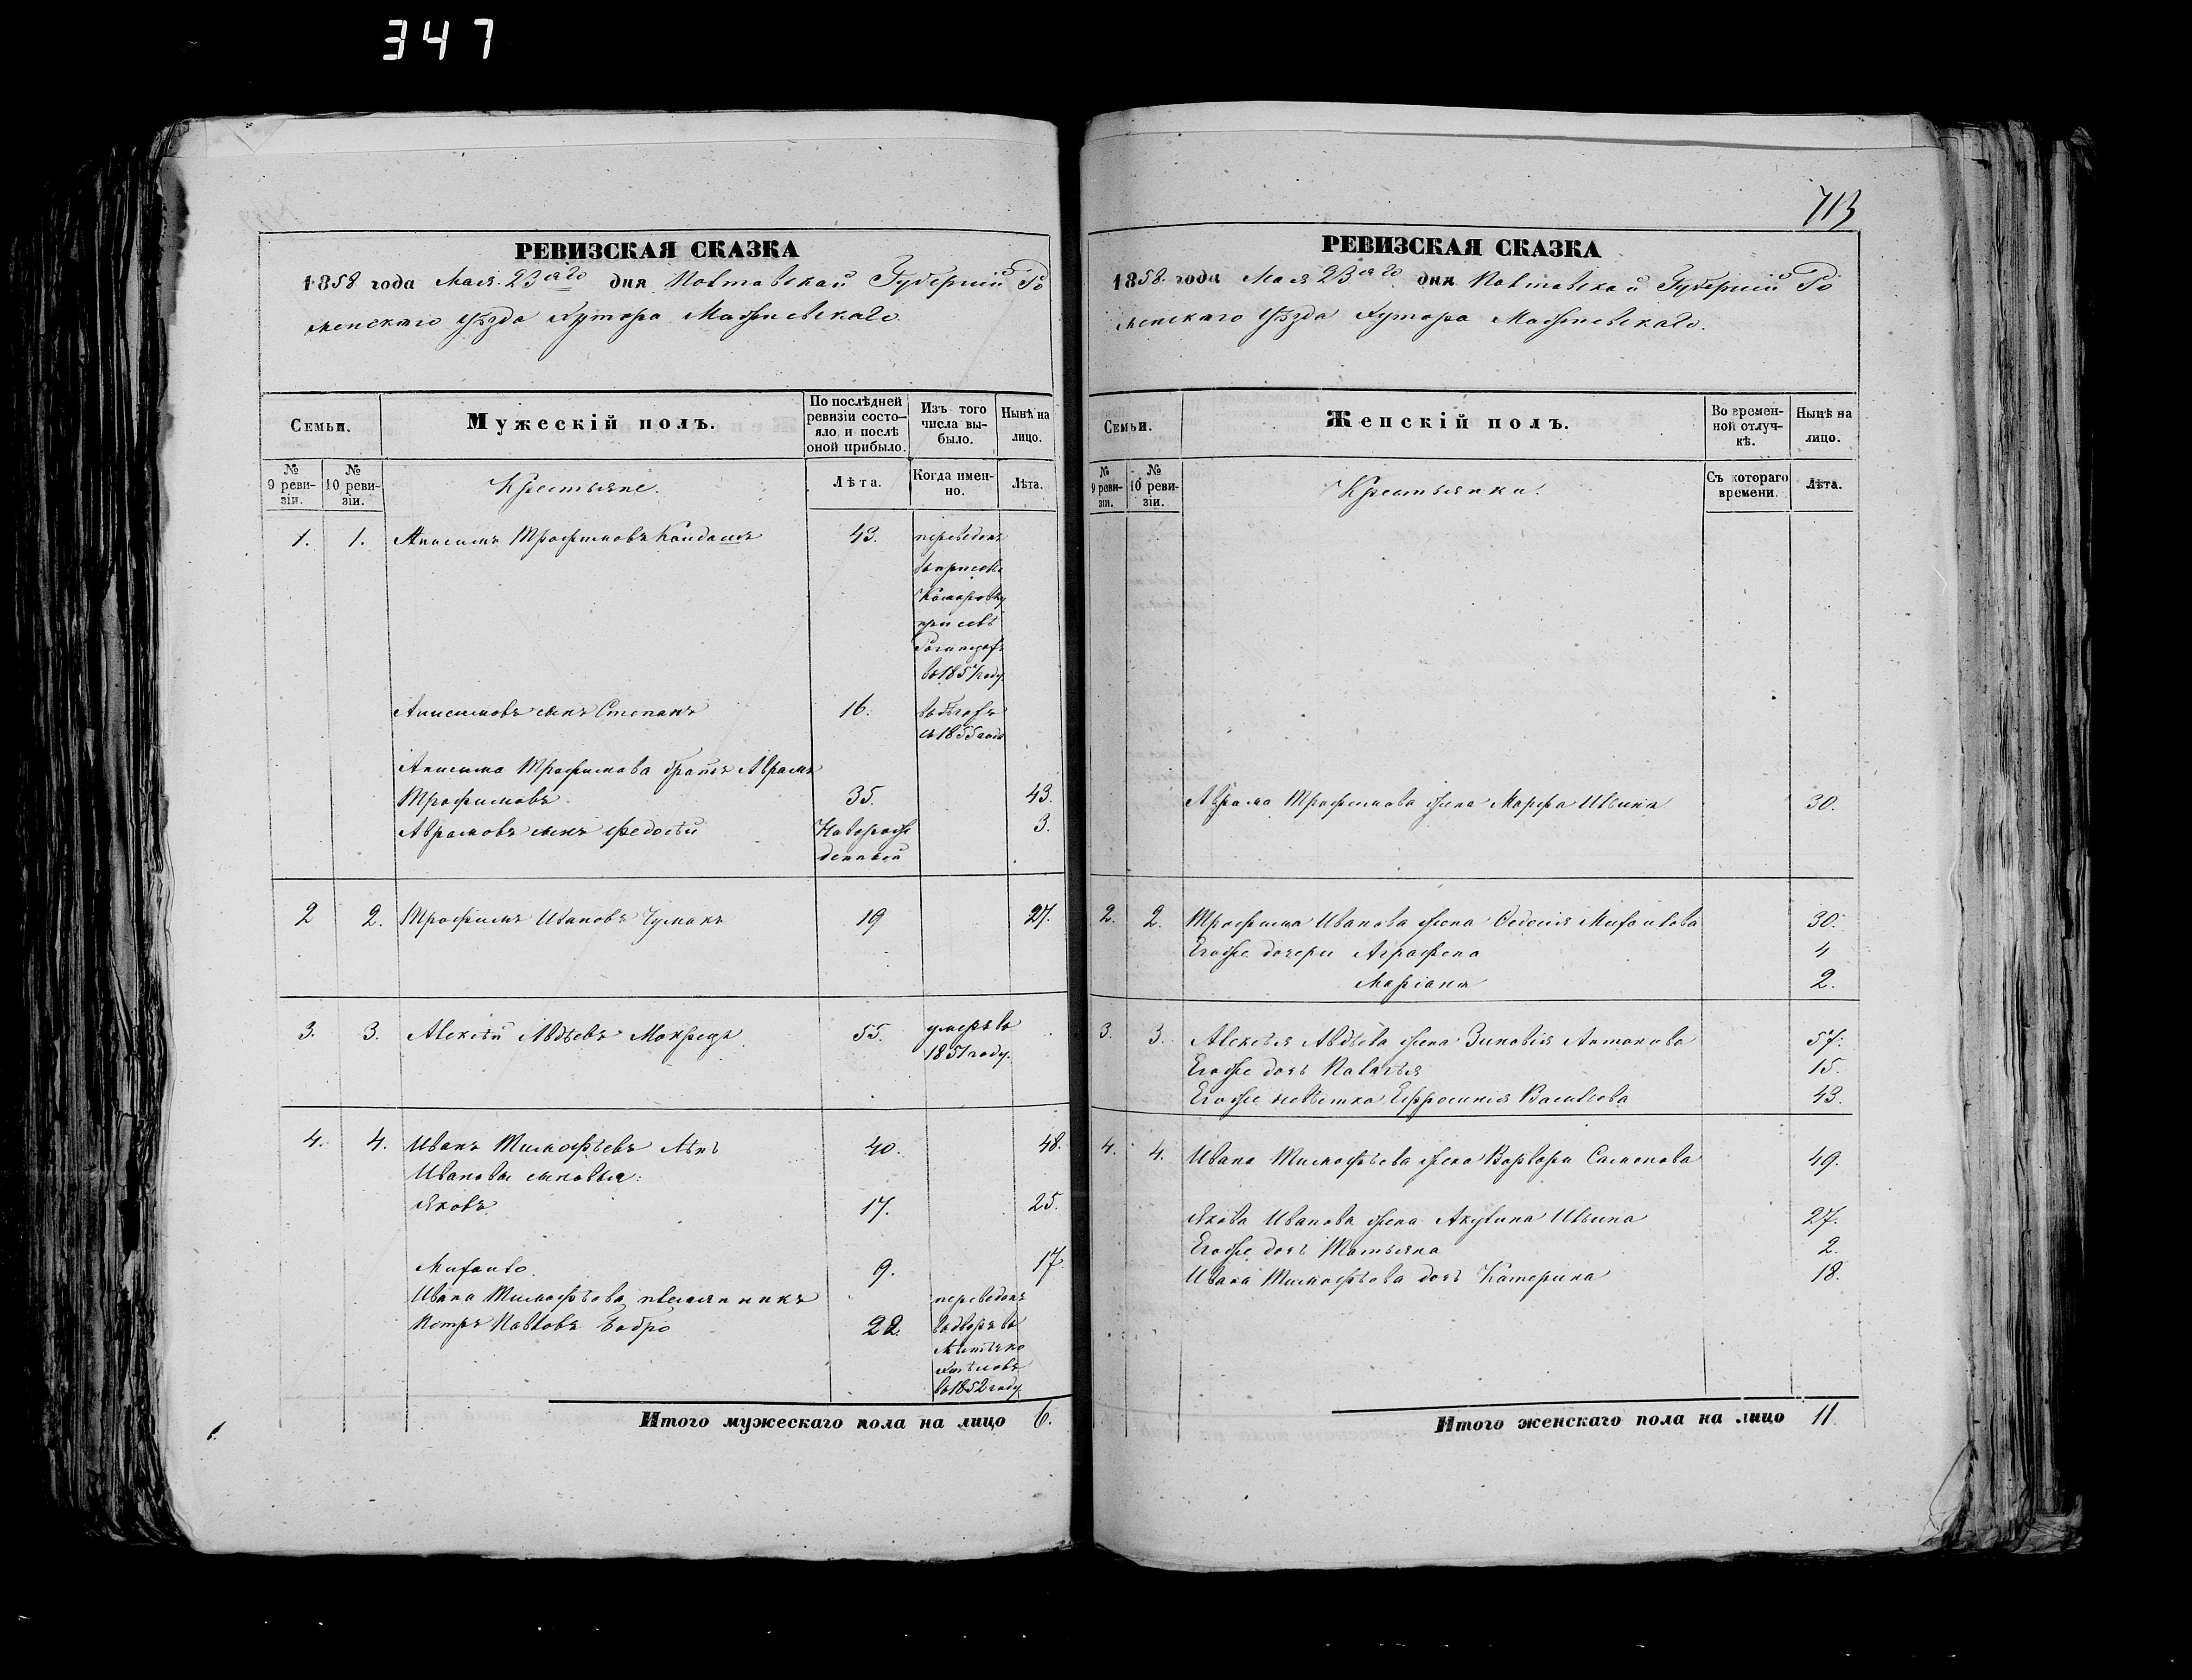 347
713
РЕВИЗСКАЯ СКАЗКА
1858 года Мая 23го дня Полтавской Губернии Ро
менского Уѣзда Хутора
Семьи.
Мужескій полъ.
По послѣдней ревизіи состо-
яло и послѣ оной прибыло.
Изъ того числа вы-
было.
Нынѣ на лицо.
№ 9 реви-
зіи.
№ 10 реви-
зіи.
Крестьяне.
Лѣта.
Когда имен-
но.
Лѣта.
1. 1. Анисимъ Трофимовъ 43. переведенъ
при селѣ
въ 1857 году.
Анисимовъ сынъ Степанъ 16. въ бѣгахъ
съ 1855 года
Анисима Трофимова братъ Аврамъ
Трофимовъ 35. 43.
Аврамовъ сынъ Федосѣй Новорож 3.
денный
2 2. Трофимъ Ивановъ Чумакъ 19 27.
3. 3. Алексѣй Авдѣевъ 55. умеръ въ
1851 году.
4. 4. Иванъ Тимофѣевъ 40. 48.
Ивановы сыновья:
Яковъ 17. 25.
Михаило. 9. 17.
Ивана Тимофѣева племянникъ переведенъ
Петръ Павловъ Бобро 22. во дворъ въ
въ 1852 году
Итого мужескаго пола на лицо 6.
РЕВИЗСКАЯ СКАЗКА
1858 года Мая 23го дня Полтавской Губернии Ро
менского Уѣзда Хутора
Семьи.
Женскій полъ.
Во времен-
ной отлуч-
кѣ.
Нынѣ на лицо.
№ 9 реви-
зіи.
№ 10 реви-
зіи.
Крестьянки.
Съ котораго времени.
Лѣта.
Аврама Трофимова жена Марфа Ильина 30.
2. 2. Трофима Иванова жена Федосія Михаилова 30.
Егоже дочери Аграфена 4
Маріана 2.
3. 3. Алексѣя Авдѣева жена Зиновія Антонова 57.
Егоже дочь Палагѣя 15.
Егоже невѣстка Ефросинія Василева 43.
4. 4. Ивана Тимофѣева жена Варвара Самонова 49.
Якова Иванова жена Акулина Ильина 27.
Егоже дочь Татьяна 2.
Ивана Тимофѣева дочь Катерина 18.
Итого женскаго пола на лицо 11.